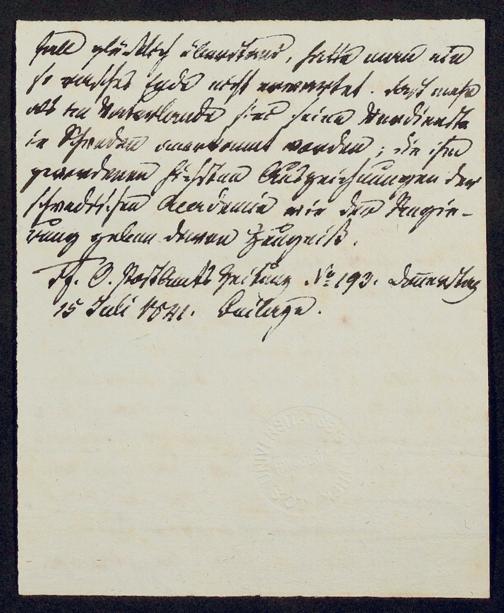 fall glücklich überstand, hatte man ein
so rasches Ende nicht erwartet. Fast mehr
als im Vaterlande sind seine Verdienste
in Schweden anerkannt worden; die ihm
gewordenen höchsten Auszeichnungen der
schwedischen Academie wie der Regie-
rung geben davon Zeugniß.
O. PostAmts Zeitung No 193. Donnerstag
15 Juli 1841. Beilage.
UNIVERSITÄTS